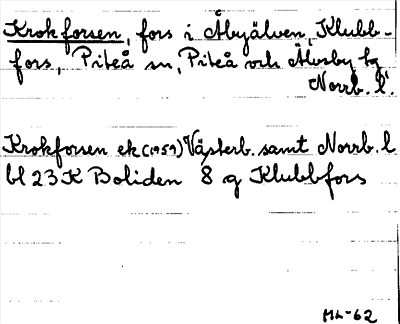 Krokforsen, fors i Åbyälven, Klubb-
fors, Piteå sn, Piteå och Älvsby tg
Norrb. l.
Krokforsen ek (1959) Västerb. samt Norrb. l
bl 23K Boliden 8 g Klubbfors
ML-62